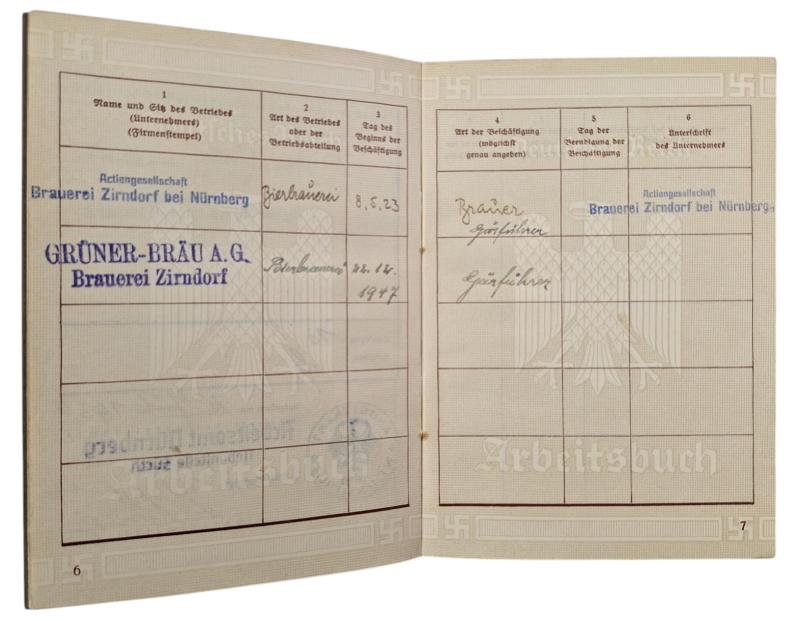 1
Name und Sitz des Betriebes
(Unternehmers)
(Firmenstempel)
2
Art des Betriebes
oder der
Betriebsabteilung
3
Tag des
Beginns der
Beschäftigung
4
Art der Beschäftigung
(möglichst
genau angeben)
5
Tag der
Beendigung der
Beschäftigung
6
Unterschrift
des Unternehmers
Actiengesellschaft
Brauerei Zirndorf bei Nürnberg
Bierbrauerei
8.5.23
Brauer
Gärführer
Actiengesellschaft
Brauerei Zirndorf bei Nürnberg.
GRÜNER-BRÄU A.G.
Brauerei Zirndorf
Bierbrauerei
22.12.
1947
Gärführer
Deutsches Reich
Arbeitsamt Nürnberg
Arbeitsbuch
Arbeitsbuch
6
7